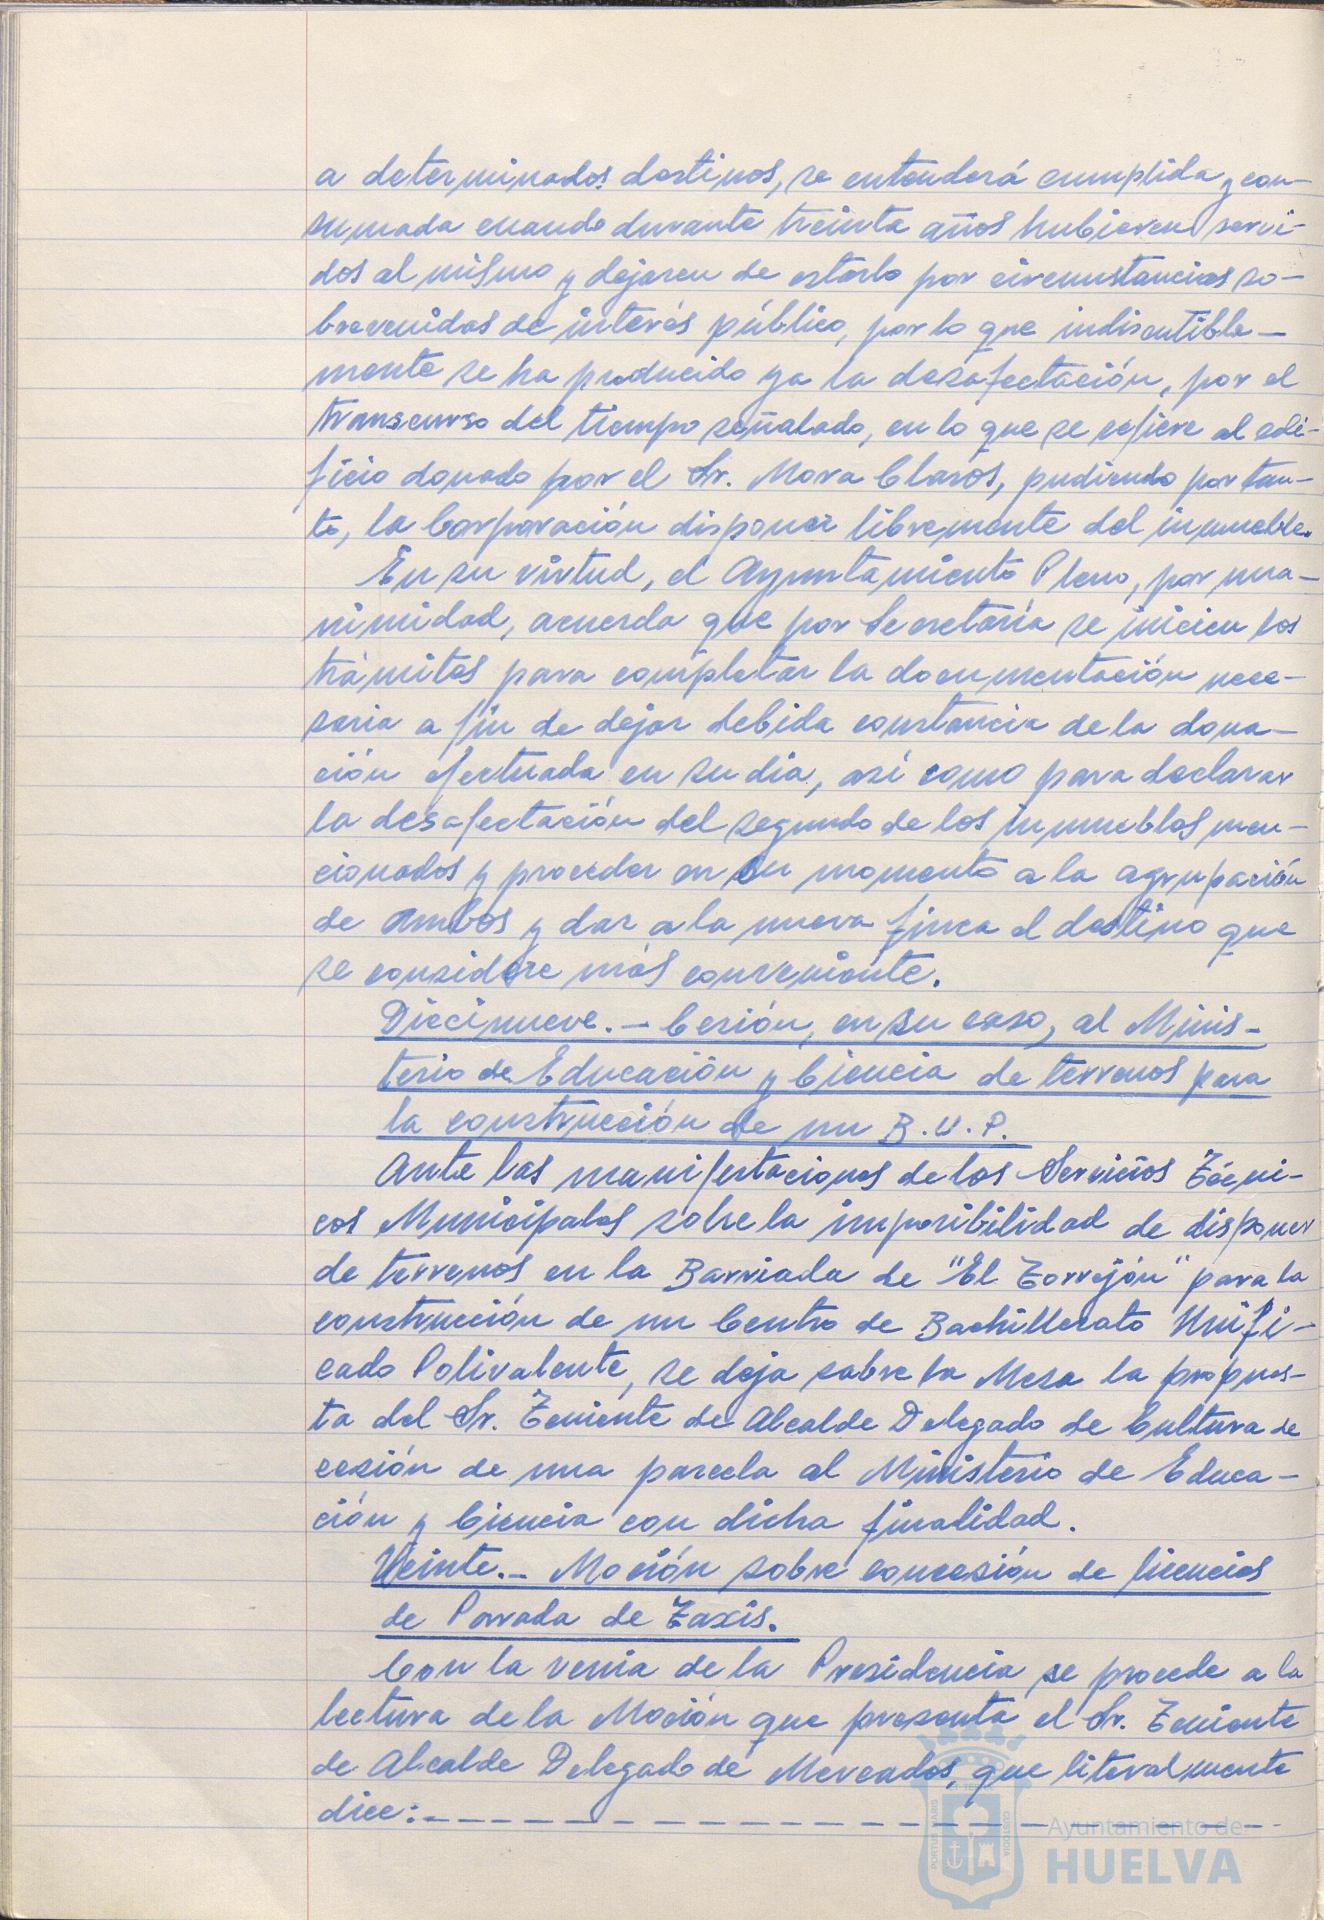 a determinados destinos, se entenderá cumplida y con-
sumada cuando durante treinta años hubieren servi-
dos al mismo y dejaren de estarlo por circunstancias so-
brevenidas de interés público, por lo que indiscutible-
mente se ha producido ya la desafectación, por el
transcurso del tiempo señalado, en lo que se refiere al edi-
ficio donado por el Sr. Mora Claros, pudiendo por tan-
to, la Corporación disponer libremente del inmueble.
En su virtud, el Ayuntamiento Pleno, por una-
nimidad, acuerda que por Secretaría se inicien los
trámites para completar la documentación nece-
saria a fin de dejar debida constancia de la dona-
ción efectuada en su día, así como para declarar
la desafectación del segundo de los inmuebles men-
cionados y proceder en su momento a la agrupación
de ambos y dar a la nueva finca el destino que
se considere más conveniente.
Diecinueve.- Cesión, en su caso, al Minis-
terio de Educación y Ciencia de terrenos para
la construcción de un B.U.P.
Ante las manifestaciones de los Servicios Técni-
cos Municipales sobre la imposibilidad de disponer
de terrenos en la Barriada de "El Torrejón" para la
construcción de un Centro de Bachillerato Unifi-
cado Polivalente, se deja sobre la Mesa la propues-
ta del Sr. Teniente de Alcalde Delegado de Cultura de
cesión de una parcela al Ministerio de Educa-
ción y Ciencia con dicha finalidad.
Veinte.- Moción sobre concesión de licencias
de Parada de Taxis.
Con la venia de la Presidencia se procede a la
lectura de la Moción que presenta el Sr. Teniente
de Alcalde Delegado de Mercados, que literalmente
dice:- - - - - - - - - - - - - - - - - - - - - - -
Ayuntamiento de
HUELVA